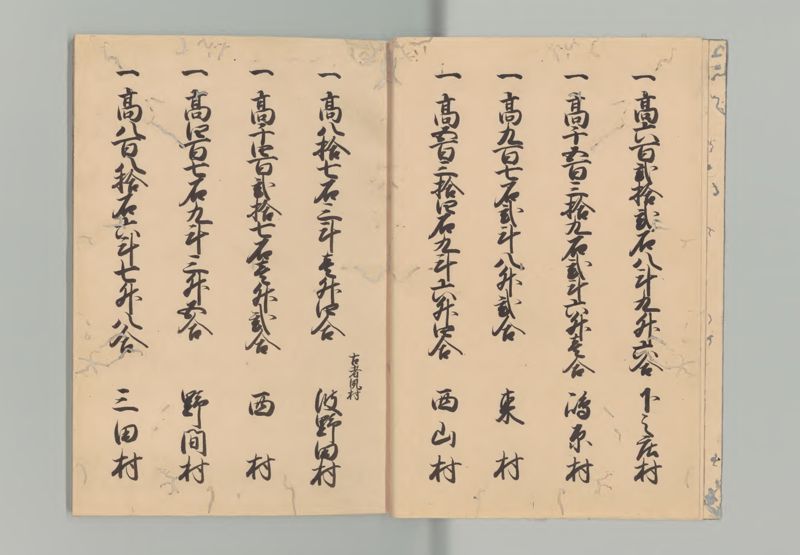 一高六百弐拾弐石八斗九升六合 下之庄村
一高千五百三拾九石弐斗六升壱合 嶋原村
一高九百七石弐斗八升弐合 東村
一高五百三拾四石九斗六升四合 西山村
古者夙村
一高八拾七石三斗壱升四合 波野田村
一高千四百弐拾七石壱升弐合 西村
一高四百七石九斗三升五合 野間村
一高八百八拾石六斗七升八合 三田村